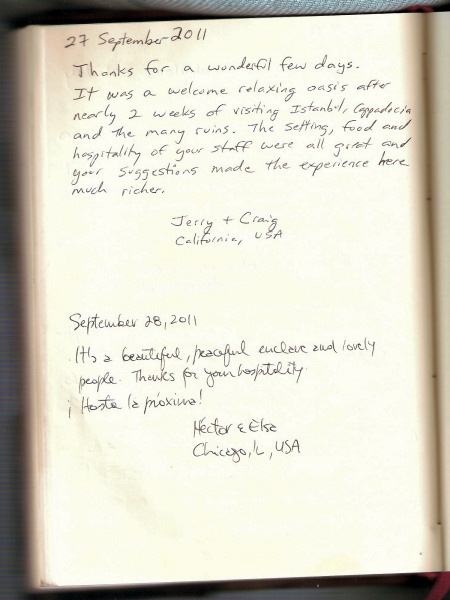 27 September 2011
Thanks for a wonderful few days.
It was a welcome relaxing oasis after
nearly 2 weeks of visiting Istanbul, Cappadocia
and the many ruins. The setting, food and
hospitality of your staff were all great and
your suggestions made the experience here
much richer.
Jerry + Craig
California, USA
September 28, 2011
It's a beautiful, peaceful enclave and lovely
people. Thanks for your hospitality.
¡Hasta la próxima!
Héctor & Elsa
Chicago, IL, USA